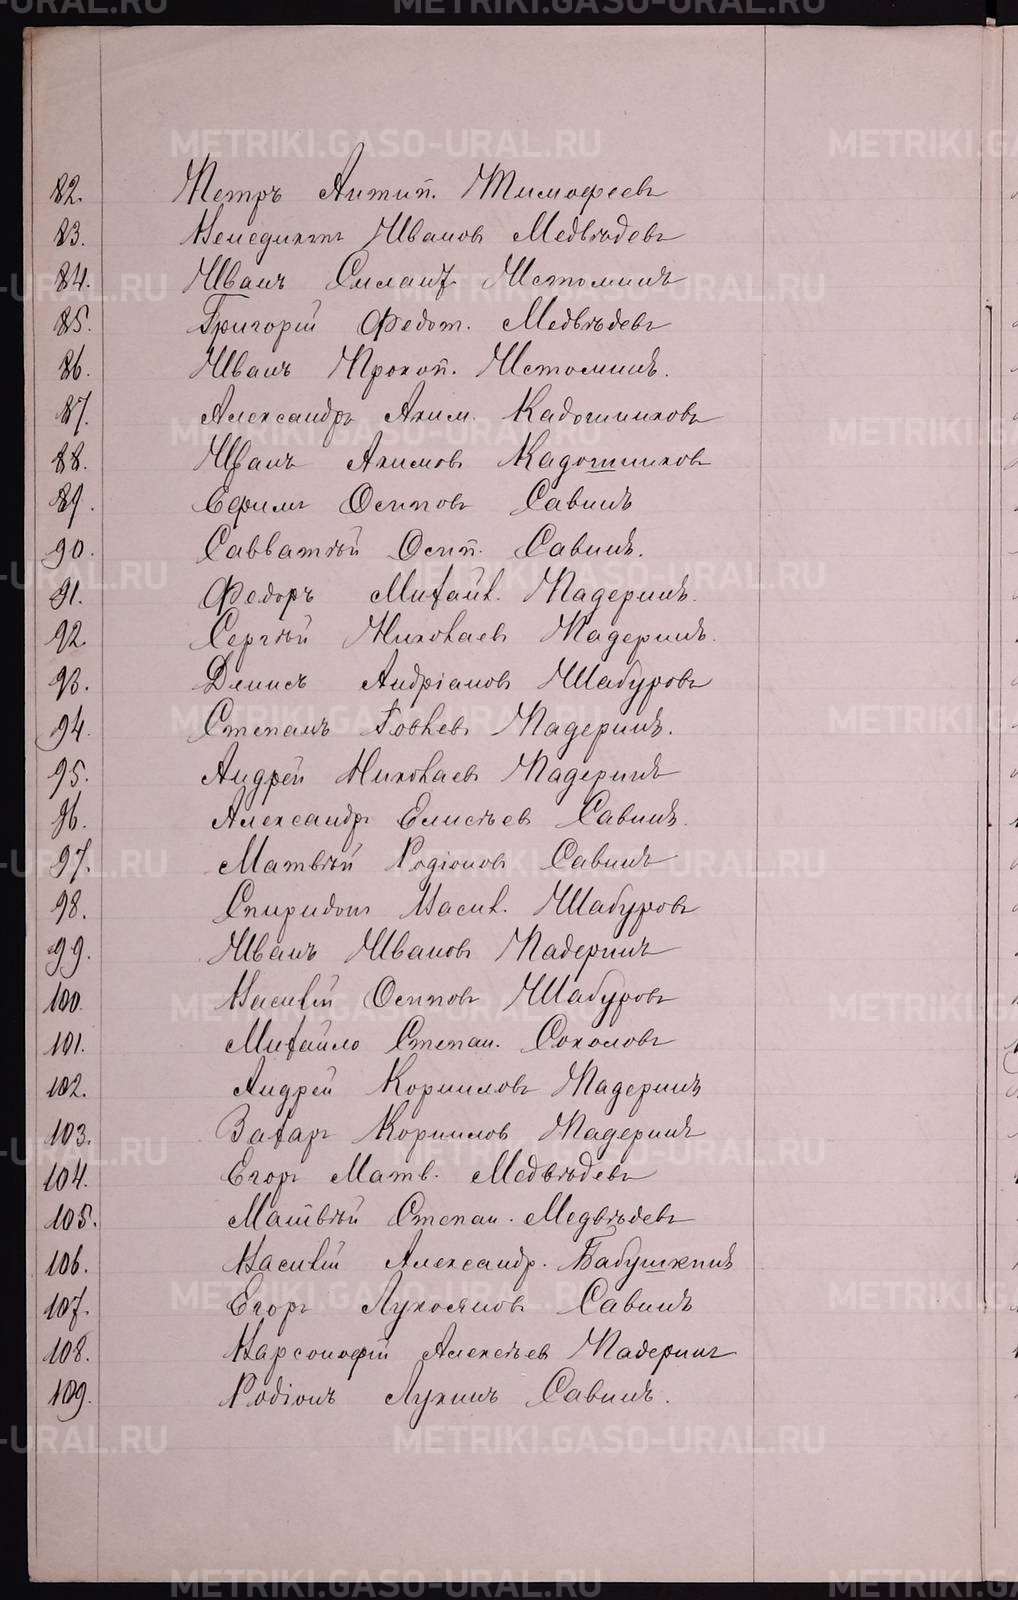 82. Петръ Антип. Тимофеевъ
83. Венедиктъ Ивановъ Медвѣдевъ
84. Иванъ Силант. Истоминъ
85. Григорій Федот. Медвѣдевъ
86. Иванъ Прокоп. Истоминъ.
87. Александръ Аким. Кадошниковъ
88. Иванъ Акимовъ Кадошниковъ
89. Ефимъ Осиповъ Савинъ
90. Савватѣй Осип. Савинъ.
91. Федоръ Михайл. Падеринъ.
92. Сергѣй Николаевъ Падеринъ.
93. Денисъ Андріановъ Шабуровъ
94. Степанъ Іовлевъ Падеринъ.
95. Андрей Николаевъ Падеринъ
96. Александръ Елисѣевъ Савинъ.
97. Матвѣй Родіоновъ Савинъ
98. Спиридонъ Васил. Шабуровъ
99. Иванъ Ивановъ Падеринъ
100. Василій Осиповъ Шабуровъ
101. Михайло Степан. Соколовъ
102. Андрей Корниловъ Падеринъ
103. Захаръ Корниловъ Падеринъ
104. Егоръ Матв. Медвѣдевъ
105. Матвѣй Степан. Медвѣдевъ
106. Василій Александр. Бабушкинъ
107. Егоръ Лукояновъ Савинъ
108. Варсонофій Алексѣевъ Падеринъ
109. Родіонъ Лукинъ Савинъ.
METRIKI.GASO-URAL.RU